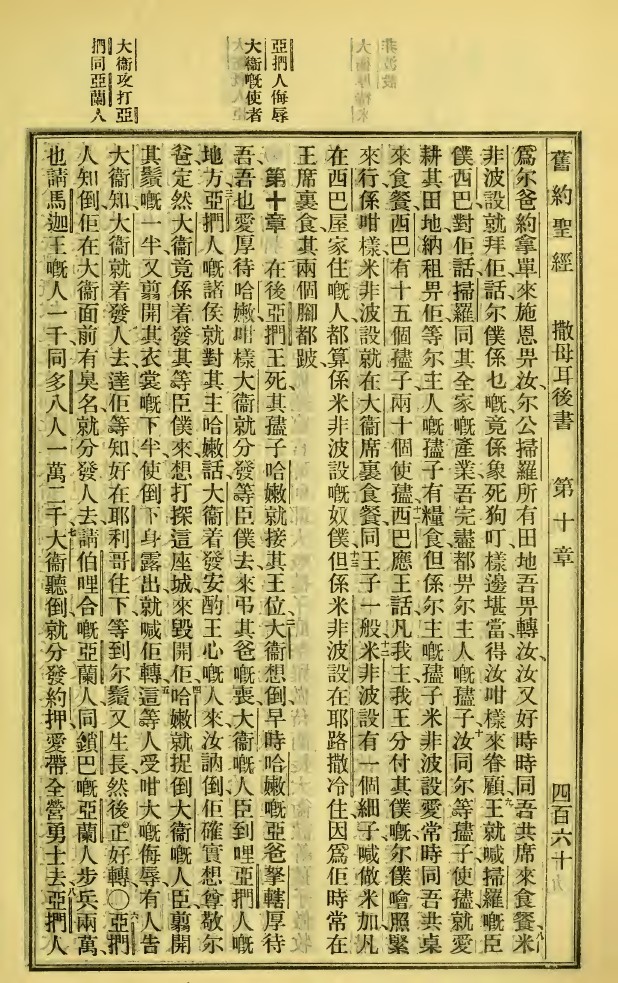 亞捫人侮辱
大衞嘅使者
大衞攻打亞
捫同亞蘭人
舊約聖經 撒母耳後書 第十章 四百六十
爲尔爸約拿單來施恩畀汝、尔公掃羅所有田地吾畀轉汝、汝又好時時同吾共席來食餐、八米
非波設就拜佢話尔僕係乜嘅竟係象死狗叮樣邊堪當得汝咁樣來眷顧、九王就喊掃羅嘅臣
僕西巴對佢話掃羅同其全家嘅產業吾完盡都畀尔主人嘅𡥧子、十汝同尔等𡥧子使𡥧就愛
耕其田地納租畀佢等尔主人嘅𡥧子有糧食但係尔主嘅𡥧子米非波設愛常時同吾共桌
來食餐、西巴有十五個𡥧子兩十個使𡥧、十一西巴應王話凡我主我王分付其僕嘅、尔僕噲照緊
來行係咁樣米非波設就在大衞席裏食餐同王子一般、十二米非波設有一個細子喊做米加凡
在西巴屋家住嘅人都算係米非波設嘅奴僕、十三但係米非波設在耶路撒冷住因爲佢時常在
王席裏食其兩個腳都跛、
第十章 在後亞捫王死其𡥧子哈嫩就接其王位、二大衞想倒早時哈嫩嘅亞爸拏轄厚待
吾吾也愛厚待哈嫩咁樣大衞就分發等臣僕去來弔其爸嘅喪、大衞嘅人臣到哩亞捫人嘅
地方、三亞捫人嘅諸侯就對其主哈嫩話大衞着發安酌王心嘅人來汝訥倒佢確實想尊敬尔
爸、定然大衞竟係着發其等臣僕來想打探這座城來毀開佢、四哈嫩就捉倒大衞嘅人臣翦開
其鬚嘅一半又翦開其衣裳嘅下半使倒下身露出就喊佢轉、五這等人受咁大嘅侮辱有人告
大衞知大衞就着發人去達佢等知好在耶利哥住下等到尔鬚又生長然後正好轉、〇六亞捫
人知倒佢在大衞面前有臭名就分發人去請伯哩合嘅亞蘭人同鎖巴嘅亞蘭人步兵兩萬、
也請馬迦王嘅人一千同多八人一萬二千、七大衞聽倒就分發約押、愛帶全營勇士去、八亞捫人